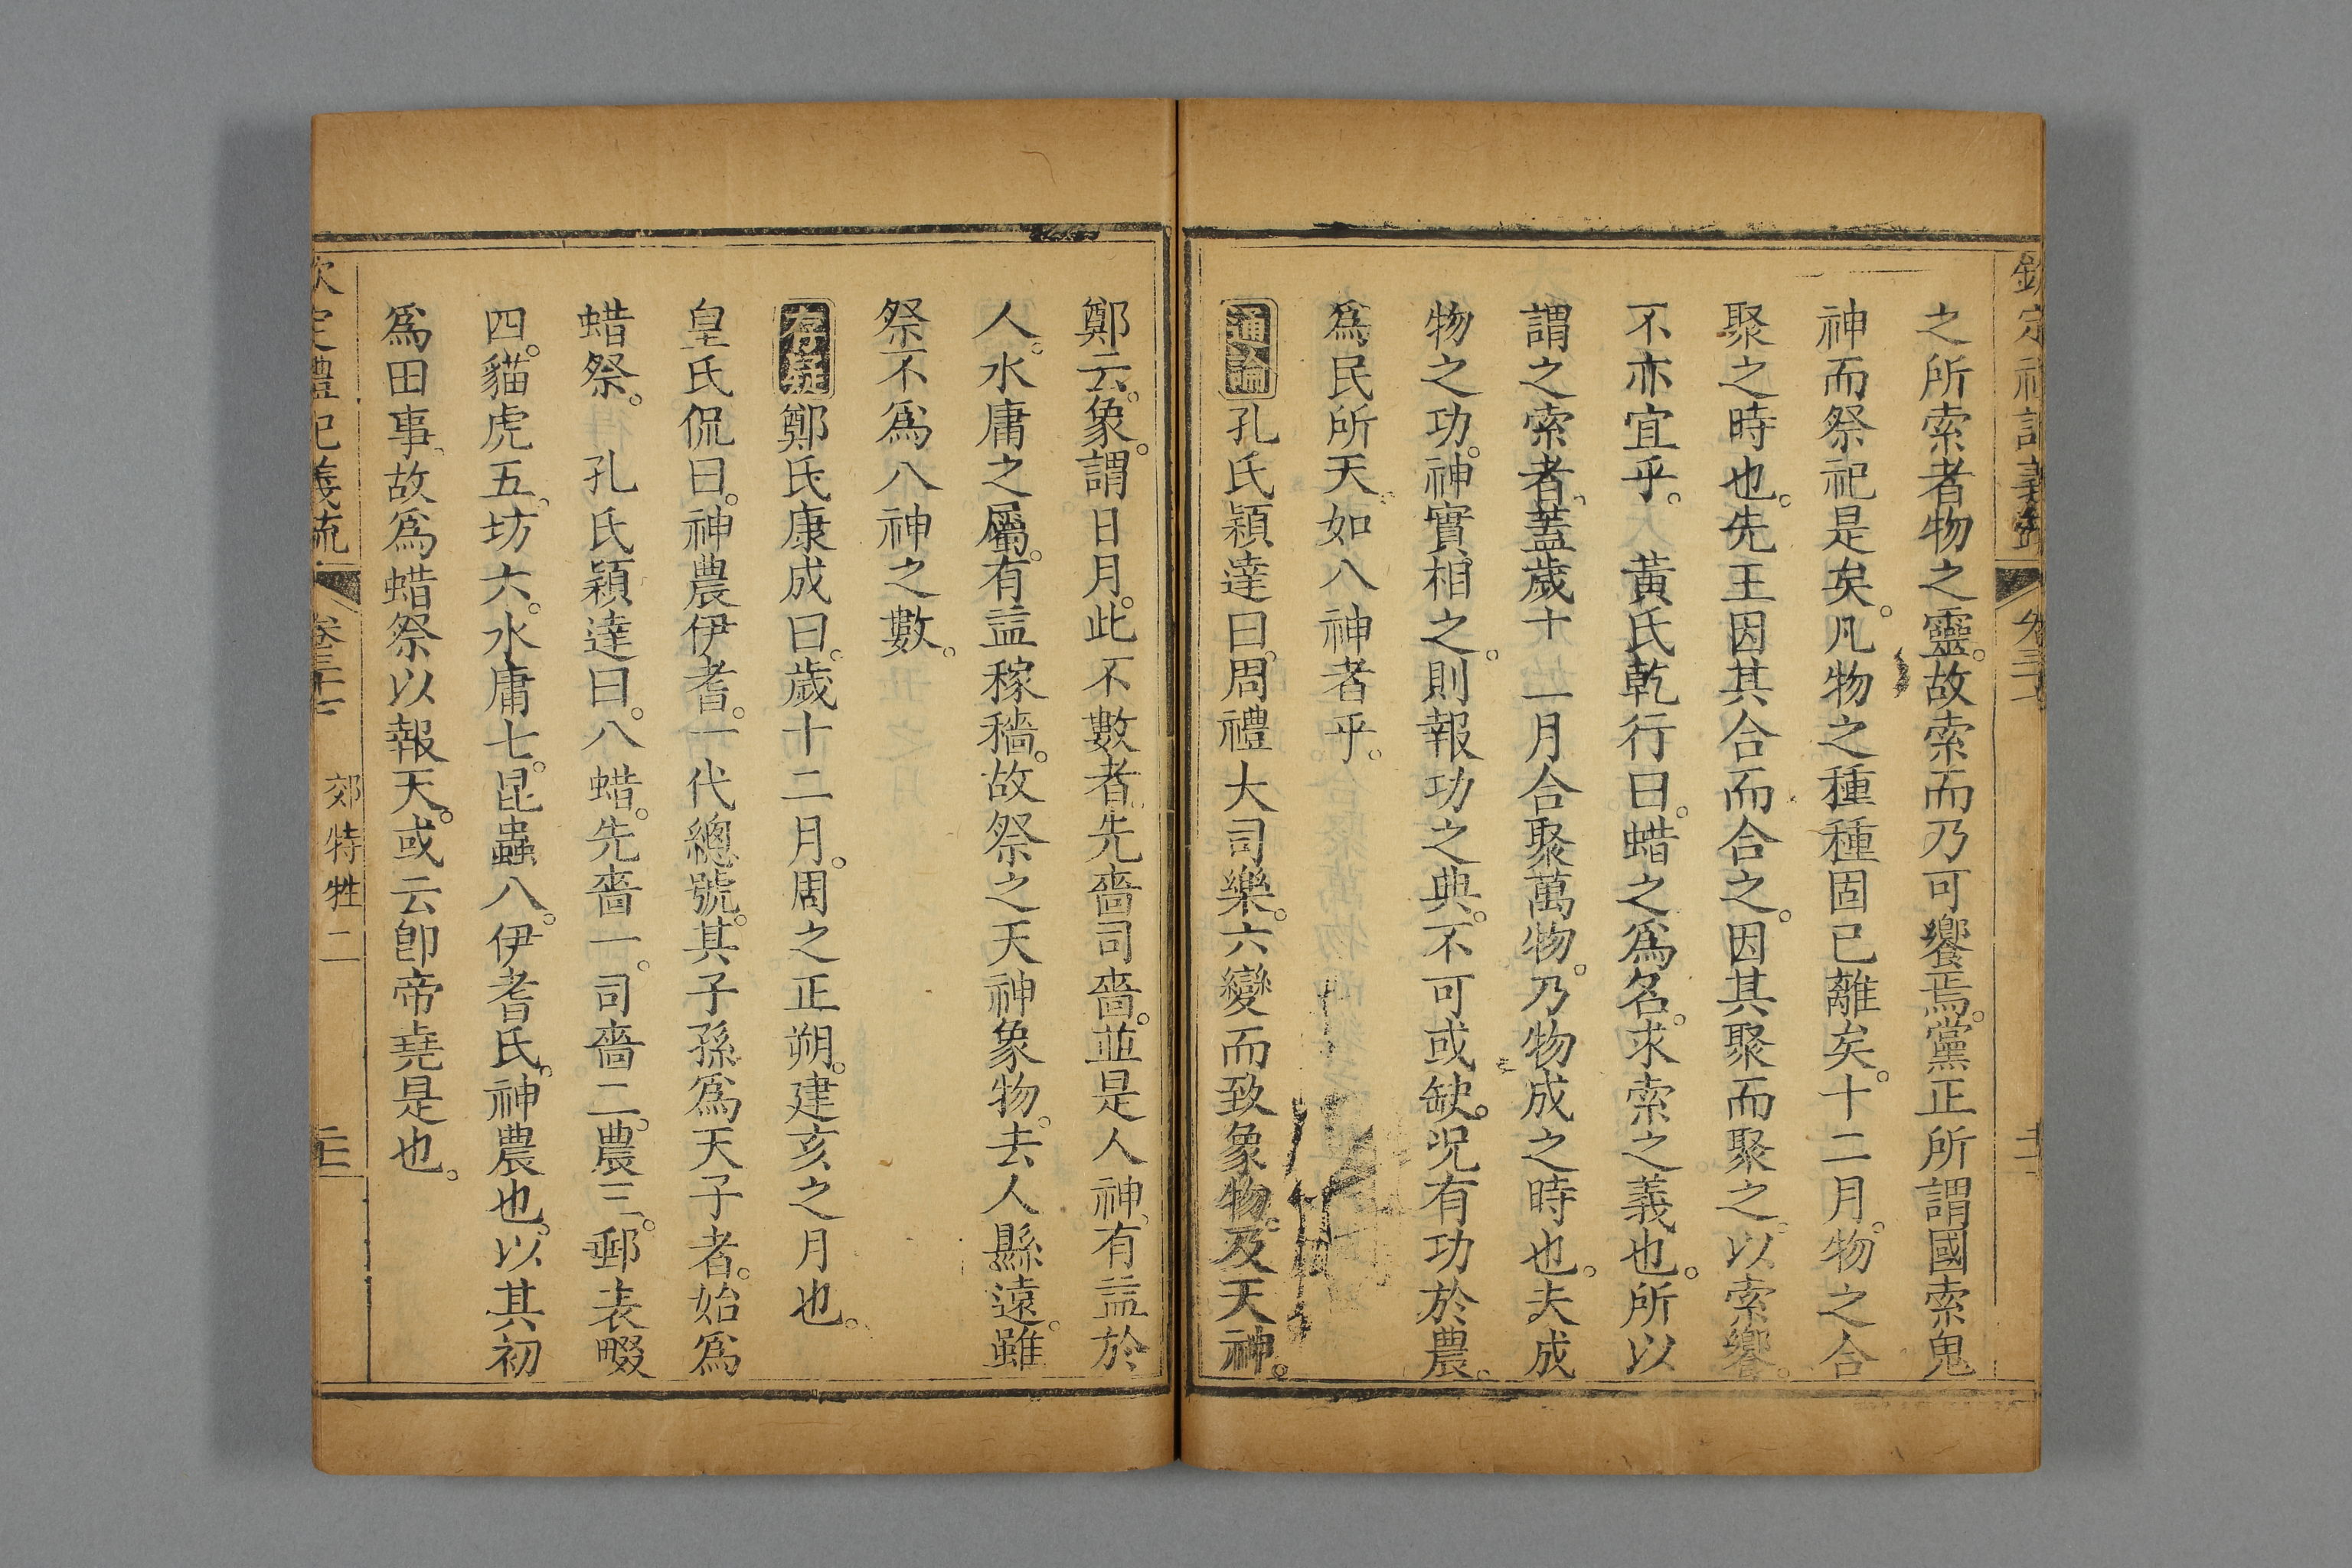 之所索者物之靈。故索而乃可饗焉。黨正所謂國索鬼
神而祭祀是矣。凡物之種種固已離矣。十二月。物之合
聚之時也。先王因其合而合之。因其聚而聚之。以索饗。
不亦宜乎。　黃氏乾行曰。蜡之爲名。求索之義也。所以
謂之索者。蓋歲十一月合聚萬物。乃物成之時也。夫成
物之功。神實相之。則報功之典。不可或缺。況有功於農。
爲民所天。如八神者乎。
通論 孔氏穎達曰。周禮大司樂。六變而致象物。及天神。
鄭云。象。謂日月。此不數者。先嗇司嗇。並是人神。有益於
人。水庸之屬。有益稼穡。故祭之天神象物。去人縣遠。雖
祭不爲八神之數。
存疑 鄭氏康成曰。歲十二月。周之正朔。建亥之月也。
皇氏侃曰。神農伊耆。一代總號。其子孫爲天子者。始爲
蜡祭。　孔氏穎達曰。八蜡。先嗇一。司嗇二。農三。郵表畷
四。貓虎五。坊六。水庸七。昆蟲八。伊耆氏。神農也。以其初
爲田事。故爲蜡祭以報天。或云卽帝堯是也。
欽定禮記義疏 卷三十七 郊特牲二